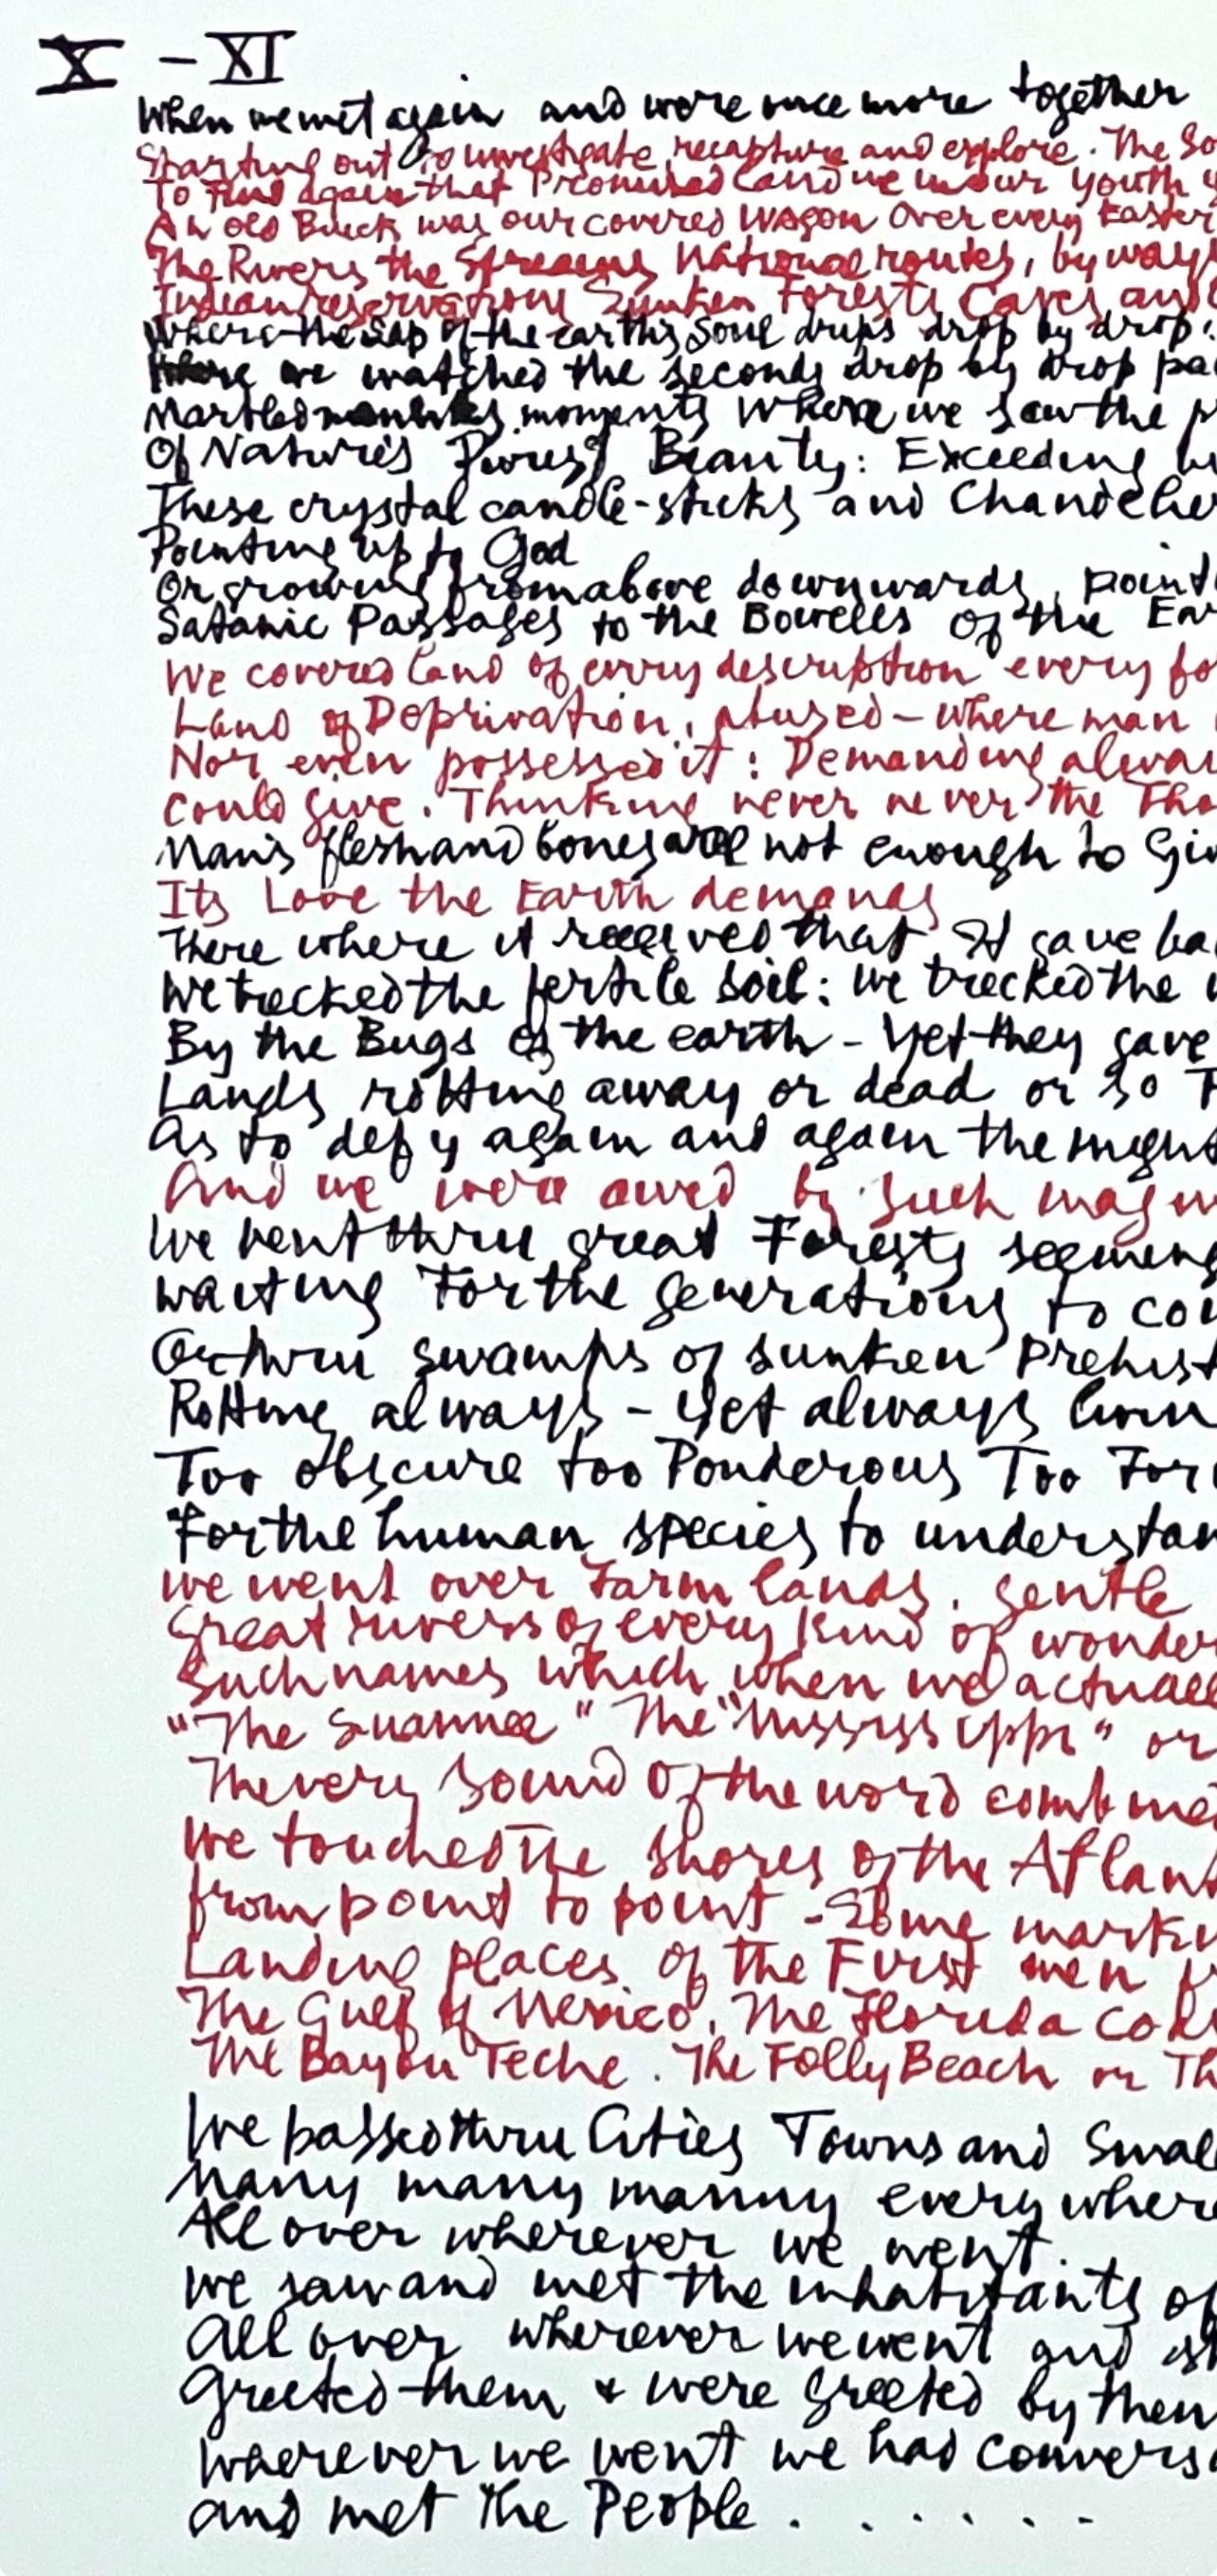 X - XI
When we met again and were once more together
Starting out to investigate, recapture and explore. The So
To Find again that Promised Land we in our youth
An old Buick was our covered Wagon Over every Easter
The Rivers the Streams National routes, by ways
Indian reservations Sunken Forests Caves and
Where the Sap of the earths Soul drips drop by drop.
Where we watched the seconds drop by drop pa
Marbled moments Where we saw the p
Of Nature's Purest Beauty: Exceeding
These crystal candle-sticks and Chandelie
Pointing up to God
Or growing from above downwards, point
Satanic Passages to the Bowells of the Ear
We covered land of every description every fo
Land of Deprivation, abused - where man
Nor even possessed it: Demanding alwa
could give. Thinking never never the Tho
Man's flesh and bones are not enough to Giv
Its Love the Earth demands
There where it received that It gave ba
We trecked the fertile soil: we trecked the
By the Bugs of the earth - Yet they gave
Lands rotting away or dead or so
As to defy again and again the might
And we were awed by such magn
We went thru great Forests seeming
waiting For the generations to co
Or thru swamps of sunken Prehist
Rotting always - Yet always livin
Too obscure too Ponderous Too For
For the human species to understan
We went over Farm lands. gentle
Great rivers of every Kind of wonder
Such names which when we actuall
"The Suannee" The "Mississippi" or
The very Sound Of the word combine
We touched The shores of the Atlant
from point to point - Some marki
Landing places of the First men
The Gulf of Mexico. The Florida Co
The Bayou Teche. The Folly Beach or Th
We passed thru Cities Towns and Smal
Many many manny every where
All over wherever we went.
We saw and met the inhabitants of
All over wherever we went and
Greeted them & were Greeted by them
Wherever we went we had convers
and met The People . . . . . . -